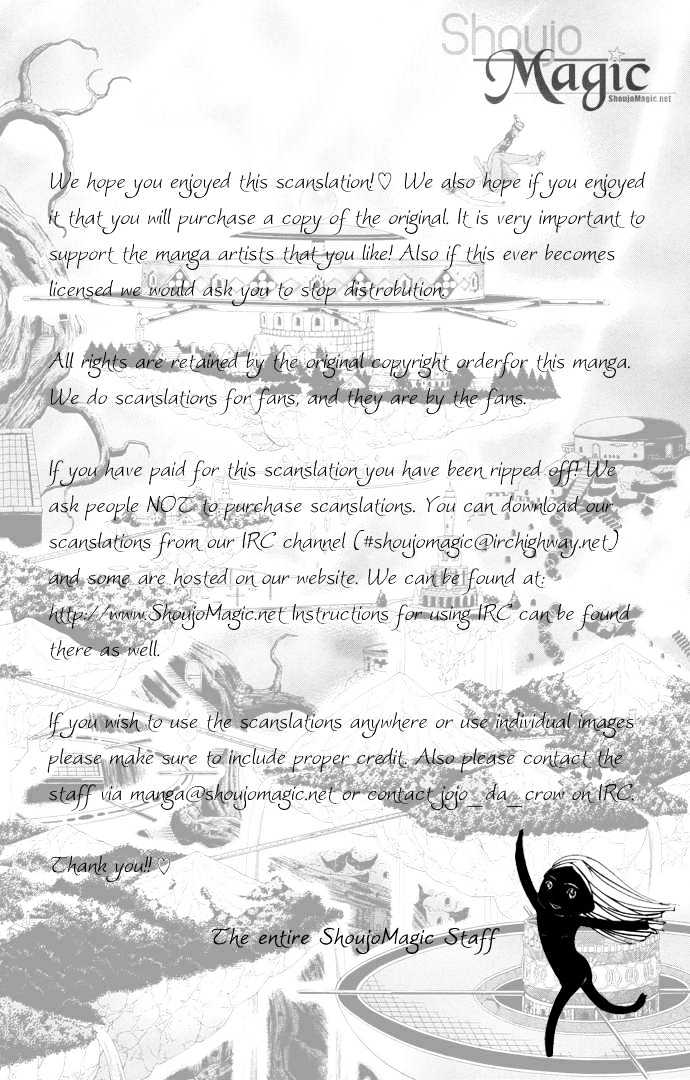 Shoujo
Magic
ShoujoMagic.net
We hope you enjoyed this scanslation!♡ We also hope if you enjoyed
it that you will purchase a copy of the original. It is very important to
support the manga artists that you like! Also if this ever becomes
licensed we would ask you to stop distrobution.
All rights are retained by the original copyright orderfor this manga.
We do scanslations for fans, and they are by the fans.
If you have paid for this scanslation you have been ripped off! We
ask people NOT to purchase scanslations. You can download our
scanslations from our IRC channel (#shoujomagic@irchighway.net)
and some are hosted on our website. We can be found at:
http://www.ShoujoMagic.net Instructions for using IRC can be found
there as well.
If you wish to use the scanslations anywhere or use individual images
please make sure to include proper credit. Also please contact the
staff via manga@shoujomagic.net or contact jojo_da_crow on IRC.
Thank you!! ♡
The entire ShoujoMagic Staff